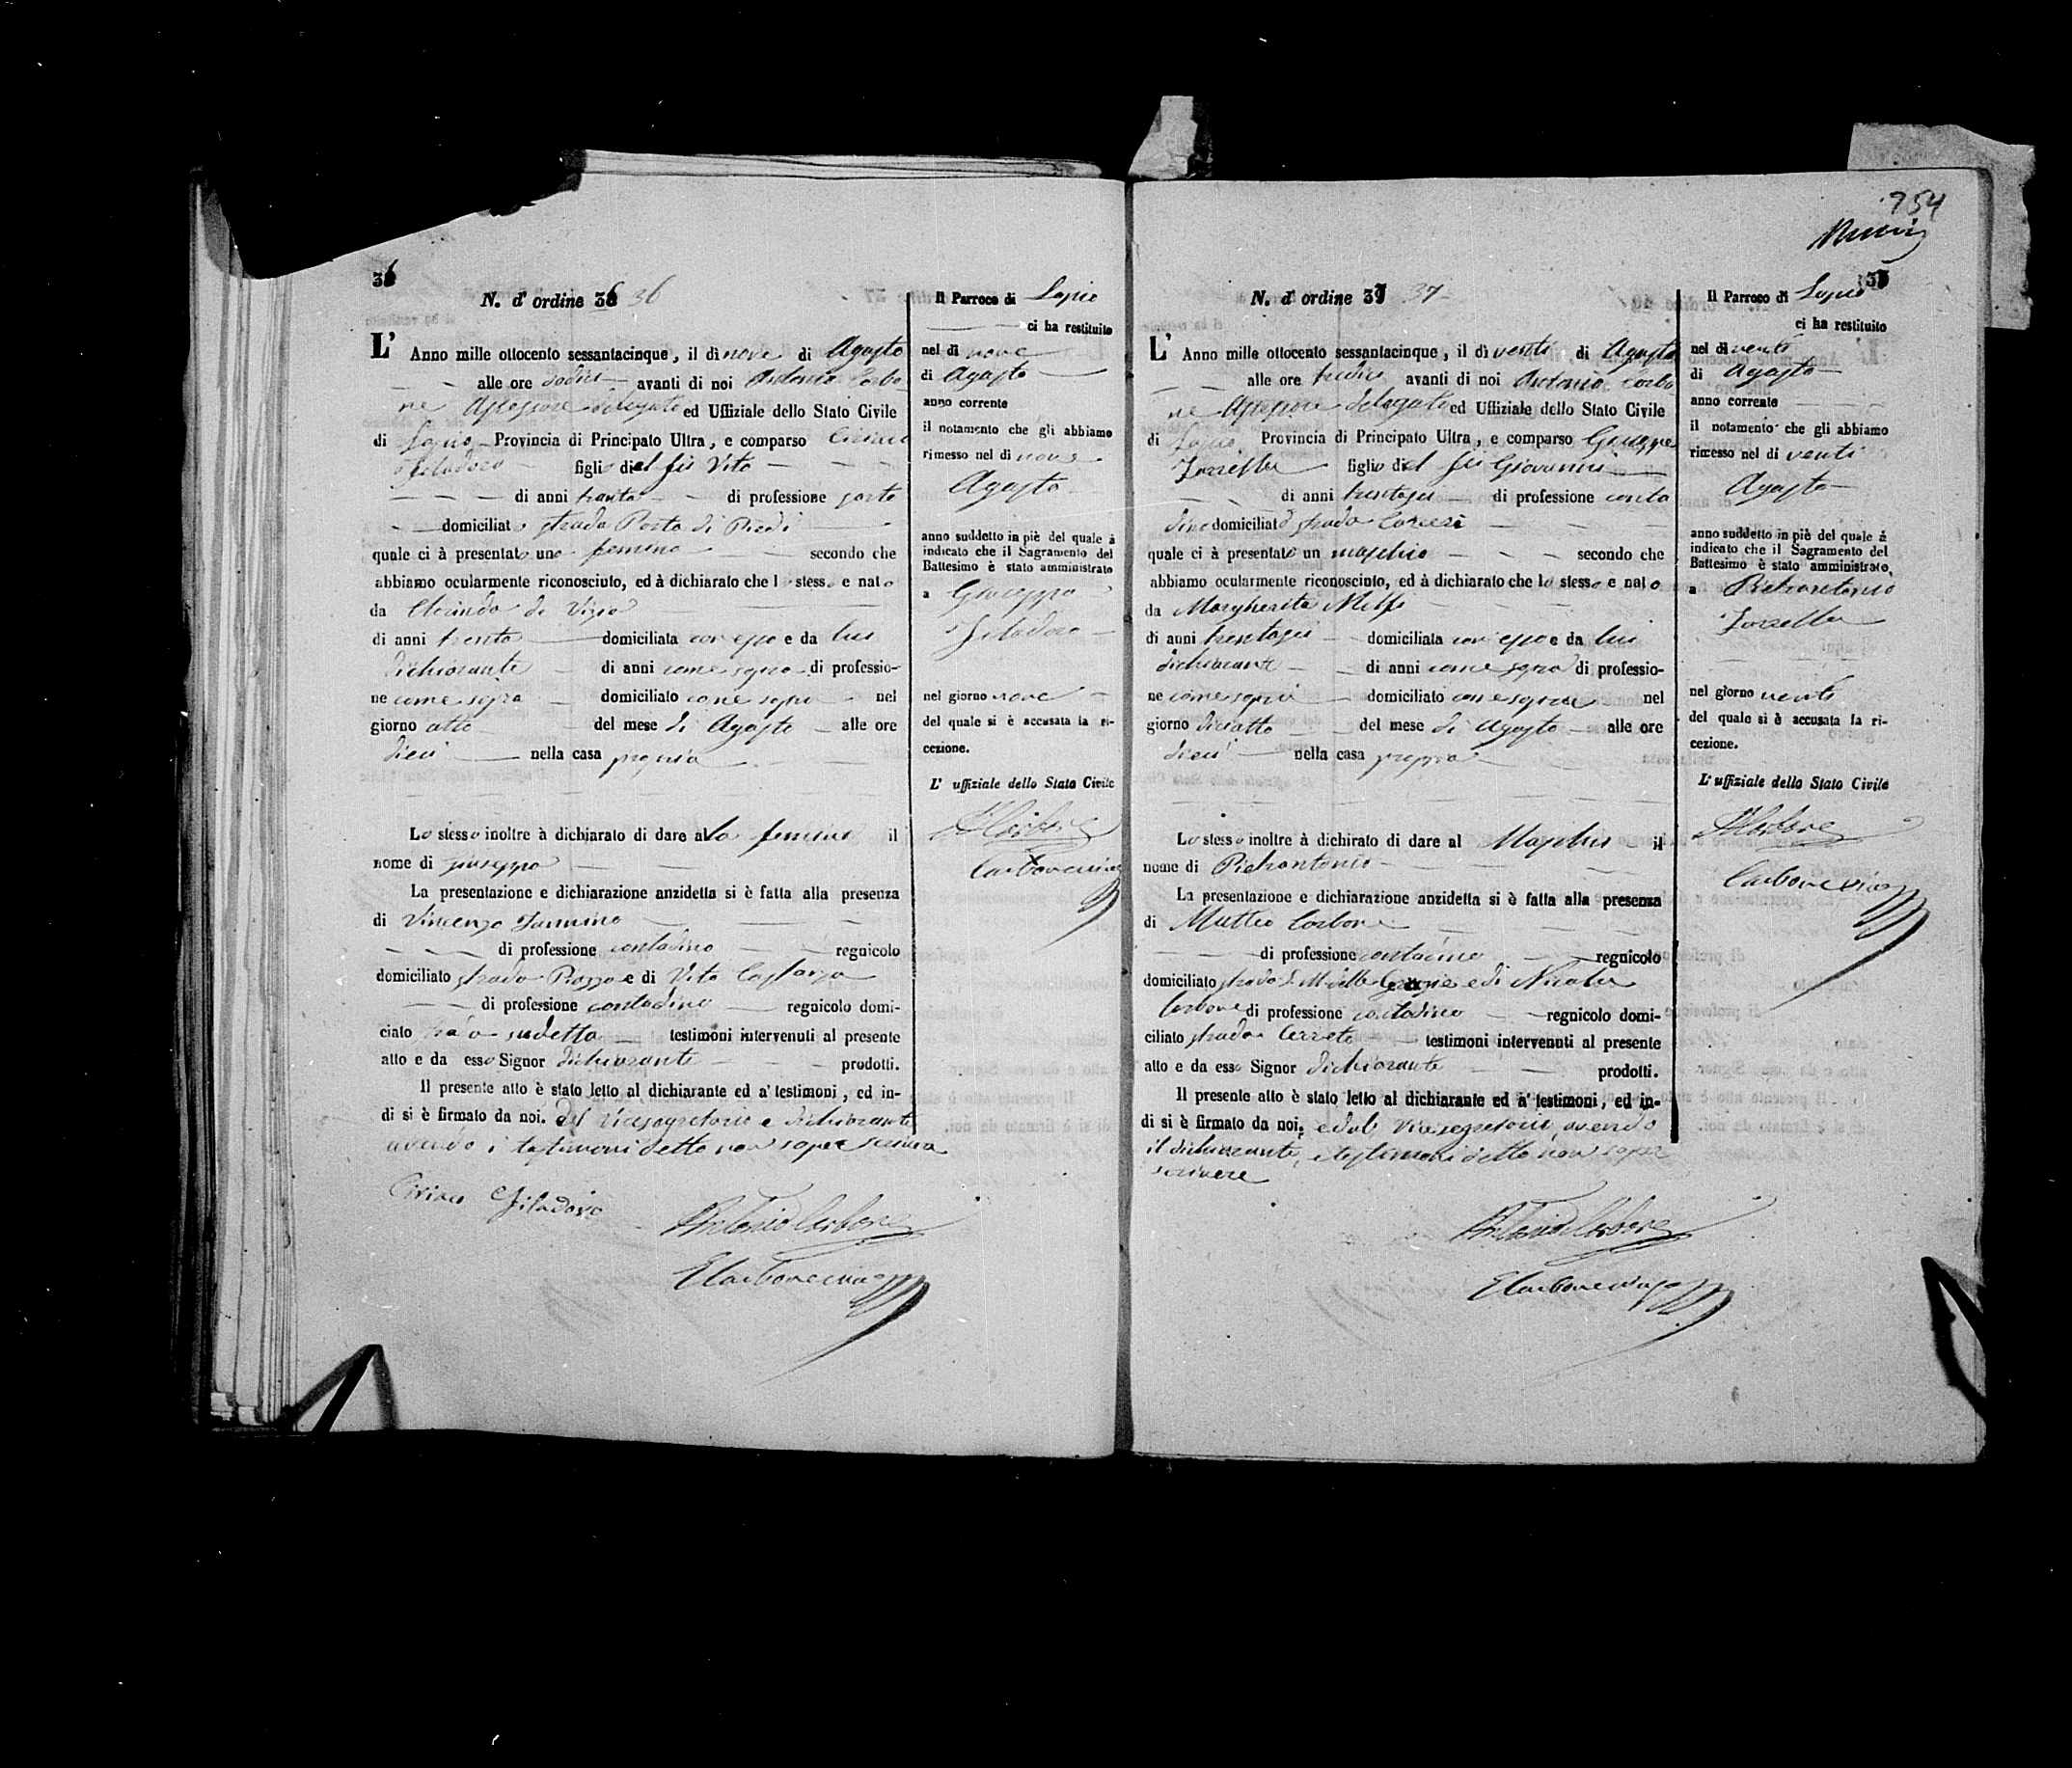 36
N. d' ordine 36 36
L' Anno mille ottocento sessantacinque, il dì nove di Agosto
alle ore dodici avanti di noi Antonio Carbo
ne Assessore delegato ed Uffiziale dello Stato Civile
di Lapio Provincia di Principato Ultra, e comparso Ciriaco
Filadoro figlio del fù Vito
di anni trenta di professione sarto
domiciliato strada Porta di Piedi
quale ci à presentato una femina secondo che
abbiamo ocularmente riconosciuto, ed à dichiarato che lo stesso e nato
da Clorinda de Vizio
di anni trenta domiciliata con esso e da lui
dichiarante di anni come sopra di professio-
ne come sopra domiciliato come sopra nel
giorno otto del mese di Agosto alle ore
dieci nella casa propria
Lo stesso inoltre à dichiarato di dare alla femina il
nome di Giuseppa
La presentazione e dichiarazione anzidetta si è fatta alla presenza
di Vincenzo Iannino
di professione contadino regnicolo
domiciliato strada Piazza e di Vito
di professione contadino regnicolo domi-
ciato sudetta testimoni intervenuti al presente
atto e da esso Signor dichiarante prodotti.
Il presente atto è stato letto al dichiarante ed a' testimoni, ed in-
di si è firmato da noi. del Vicesegretario e dichiarante
avendo i testimoni detto non saper scrivere
Ciriaco Filadoro
Antonio Carbone
Il Parroco di Lapio
ci ha restituito
nel dì nove
di Agosto
anno corrente
il notamento che gli abbiamo
rimesso nel dì nove
Agosto
anno suddetto in piè del quale à
indicato che il Sagramento del
Battesimo è stato amministrato
a Giuseppa
Filadoro
nel giorno nove
del quale si è accusata la ri-
cezione.
L' uffiziale dello Stato Civile
A Carbone
954
37
N. d' ordine 37 37
L' Anno mille ottocento sessantacinque, il dì venti di Agosto
alle ore tredici avanti di noi Antonio Carbo
ne Assessore delegato ed Uffiziale dello Stato Civile
di Lapio Provincia di Principato Ultra, e comparso Giuseppe
Forzella figlio del fù Giovanni
di anni trentasei di professione conta
dino domiciliato strada Carceri
quale ci à presentato un maschio secondo che
abbiamo ocularmente riconosciuto, ed à dichiarato che lo stesso e nato
da Margherita Melfi
di anni trentasei domiciliata con esso e da lui
dichiarante di anni come sopra di professio-
ne come sopra domiciliato come sopra nel
giorno diciotto del mese di Agosto alle ore
dieci nella casa propria
Lo stesso inoltre à dichirato di dare al Maschio il
nome di Pietrantonio
La presentazione e dichiarazione anzidetta si è fatta alla presenza
di Matteo Carbone
di professione contadino regnicolo
domiciliato strada S. M. delle Grazie e di Nicola
Carbone di professione contadino regnicolo domi-
ciliato strada Cerreto testimoni intervenuti al presente
atto e da esso Signor dichiarante prodotti.
Il presente atto è stato letto al dichiarante ed a' testimoni, ed in-
di si è firmato da noi, e dal Vicesegretario, avendo
il dichiarante, e testimoni detto non saper
scrivere
Antonio Carbone
Il Parroco di Lapio
ci ha restituito
nel dì venti
di Agosto
anno corrente
il notamento che gli abbiamo
rimesso nel dì venti
Agosto
anno suddetto in piè del quale à
indicato che il Sagramento del
Battesimo è stato amministrato
a Pietrantonio
Forzella
nel giorno venti
del quale si è accusata la ri-
cezione.
L' uffiziale dello Stato Civile
A Carbone